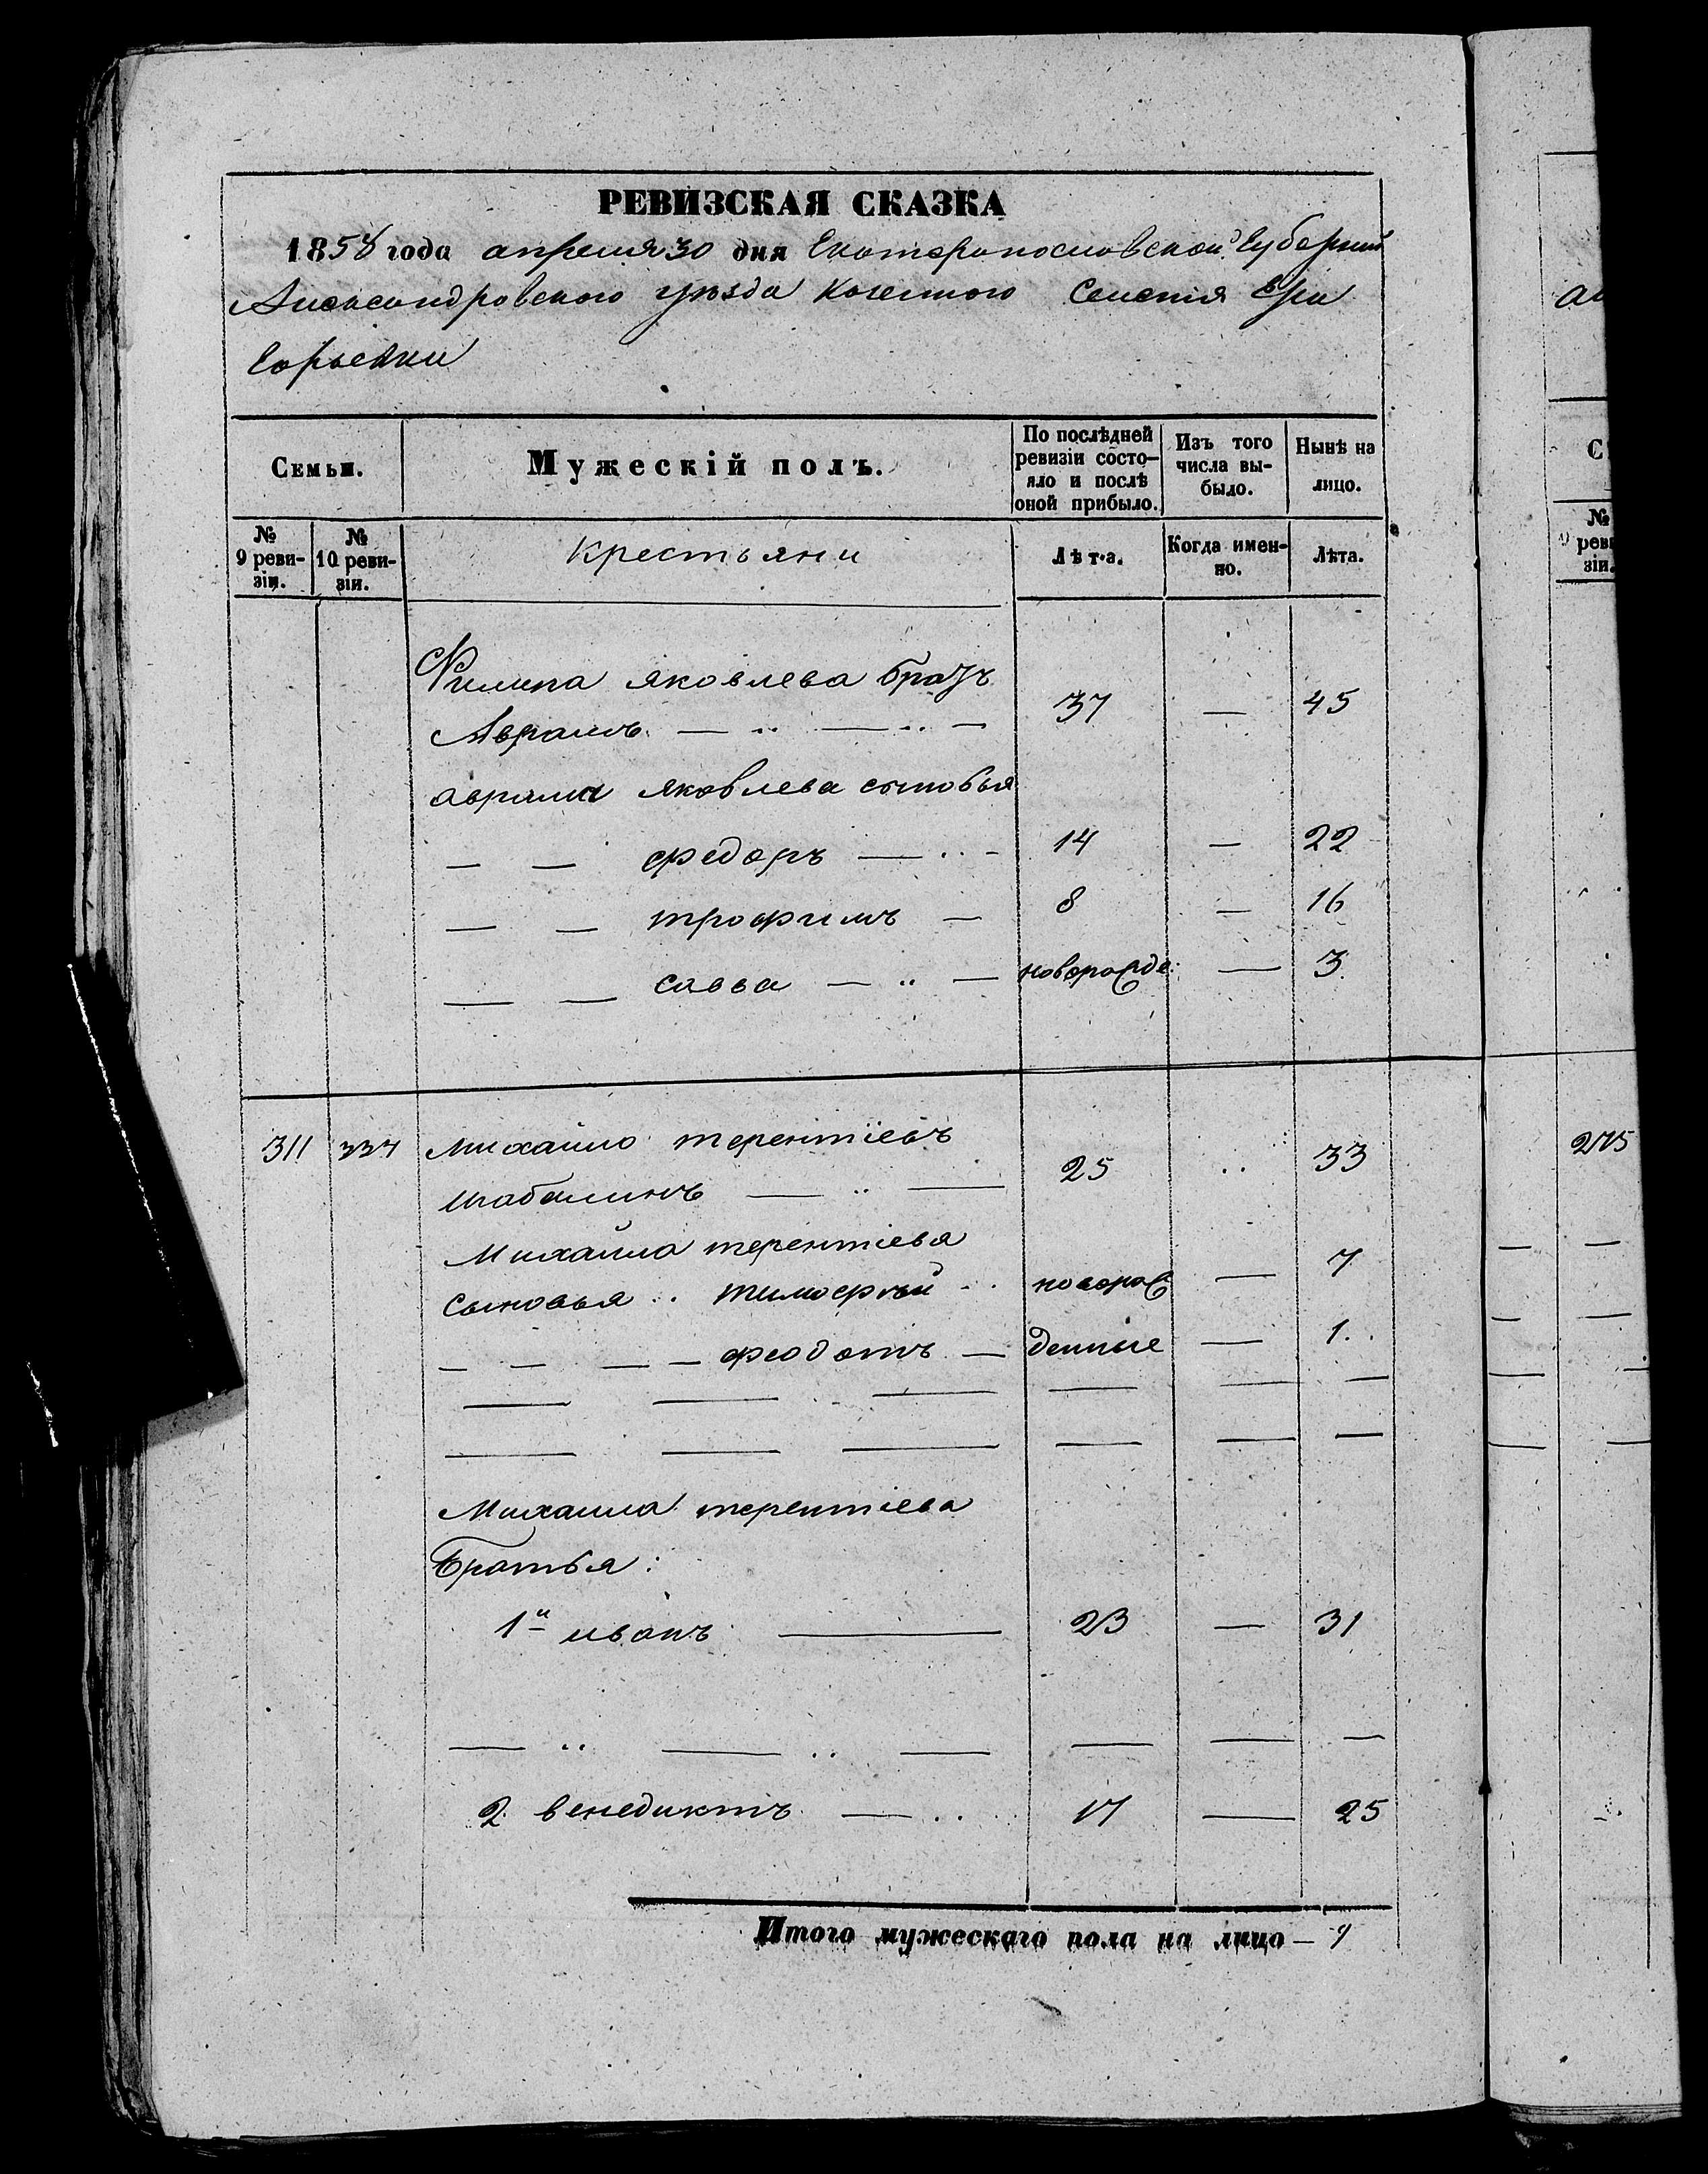 РЕВИЗСКАЯ СКАЗКА
1858 года апреля 30 дня Екатеринославской Губерний
Александровского уѣзда Козенного Селенія Гри
горьевки
Семьи.
Мужескій полъ.
По послѣдней ревизіи состо-
яло и послѣ
оной прибыло.
Изъ того
числа вы-
было.
Нынѣ на
лицо.
№
9 реви-
зіи.
№
10 реви-
зіи.
Крестьяни
Лѣта.
Когда имен-
но.
Лѣта.
Филипа яковлева братъ
Аврамъ — .. — .. — 37 — 45
аврама яковлева сыновья
— — федоръ — .. - 14 — 22
— — трофимъ — 8 — 16
— — савва — .. — новорожде: — 3
311 337 Михайло терентіевъ
шабалинъ — .. — 25 .. 33
Михайла терентіева
сыновья .. тимофѣй .. новорож — 7
— — — — феодотъ — денные — 1.
— — — — — —
— — — — — —
Михаила терентіева
Братья:
1й иванъ — 23 — 31
— .. — .. — — — —
2. венедиктъ — .. 17 — 25
Итого мужескаго пола на лицо — 9
№
реви
зіи.
275